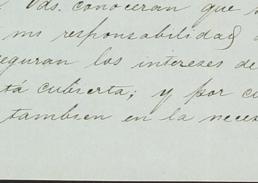 Vds. conoceran que
mi responsabilidad
eguran los intereses de
tá cubierta; y por
tambien en la neces